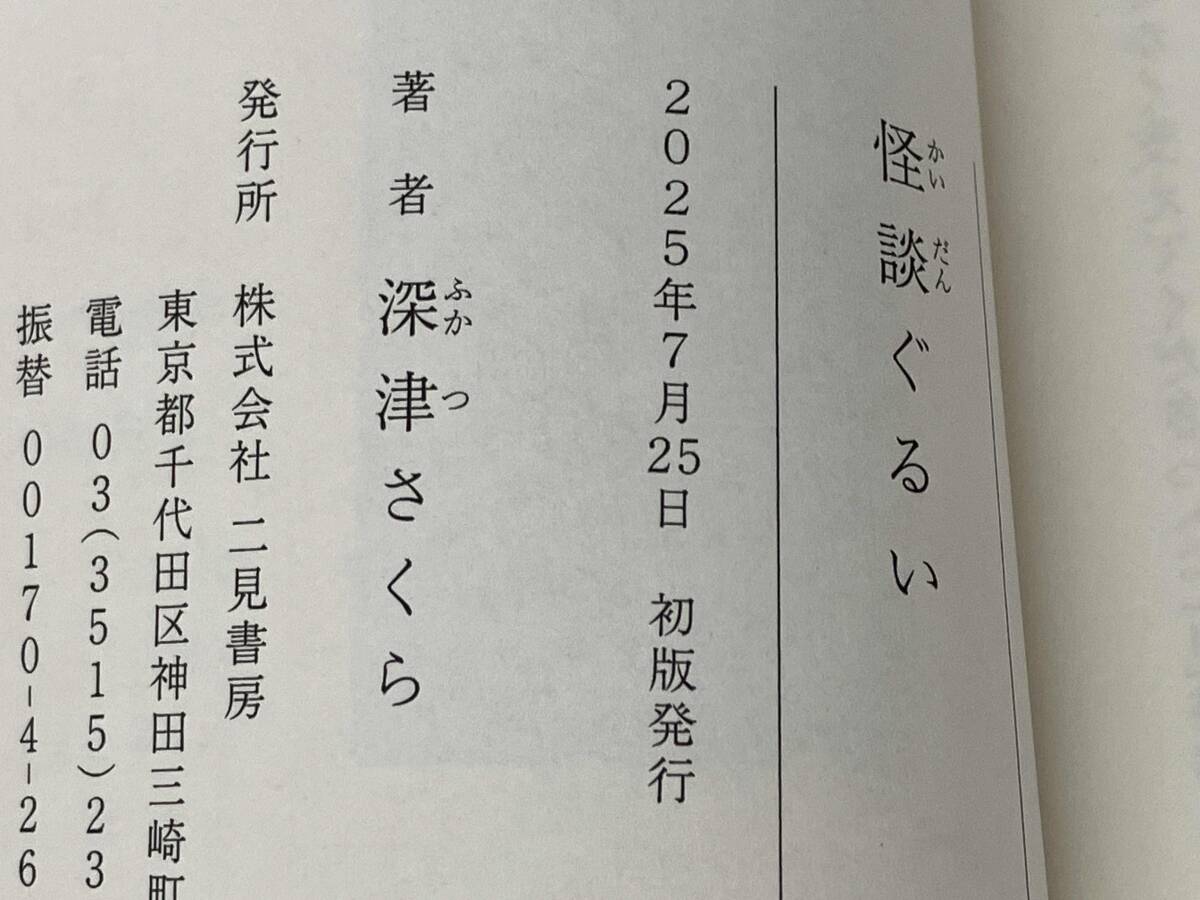 怪談ぐるい
かいだん
2025年7月25日 初版発行
著者 深津さくら
ふかつ
発行所 株式会社 二見書房
東京都千代田区神田三崎町
電話 03(3515)23
振替 00170-4-26